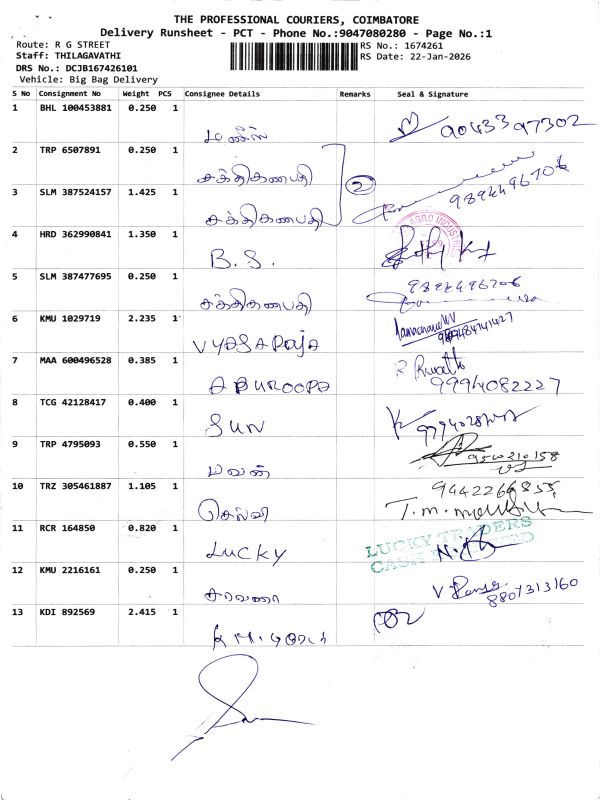 THE PROFESSIONAL COURIERS, COIMBATORE
Delivery Runsheet - PCT - Phone No.:9047080280 - Page No.:1
Route: R G STREET
RS No.: 1674261
Staff: THILAGAVATHI
RS Date: 22-Jan-2026
DRS No.: DCJB167426101
Vehicle: Big Bag Delivery
S No Consignment No Weight PCS Consignee Details Remarks Seal & Signature
1 BHL 100453881 0.250 1
90433 97302
2 TRP 6507891 0.250 1
சக்திகணபதி 2
3 SLM 387524157 1.425 1
சக்திகணபதி 9894496706
4 HRD 362990841 1.350 1
AGRO INDUSTRIE
B.S.
5 SLM 387477695 0.250 1
சக்திகணபதி 9894496706
6 KMU 1029719 2.235 1
VYASARAJA
7 MAA 600496528 0.385 1
ABUROOPA 9994082227
8 TCG 42128417 0.400 1
SUN
9 TRP 4795093 0.550 1
பவன் 9500210158
10 TRZ 305461887 1.105 1
செல்வி 9442266855
11 RCR 164850 0.820 1
LUCKY LUCKY TRADERS
12 KMU 2216161 0.250 1
சரவணா 8807313160
13 KDI 892569 2.415 1
K.M.